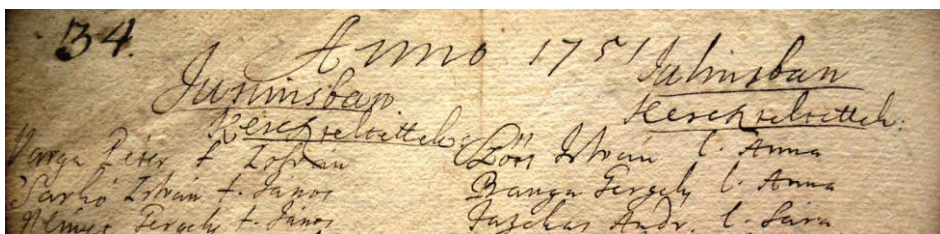 34. Anno 1751
Juniusban
Kereszteltettek
Varga Péter f. István
Sarkó István f. János
Németh Gergely f. János
Juliusban
Kereszteltettek.
István l. Anna
Banga Gergely l. Anna
Fazekas Andr. l. Sára